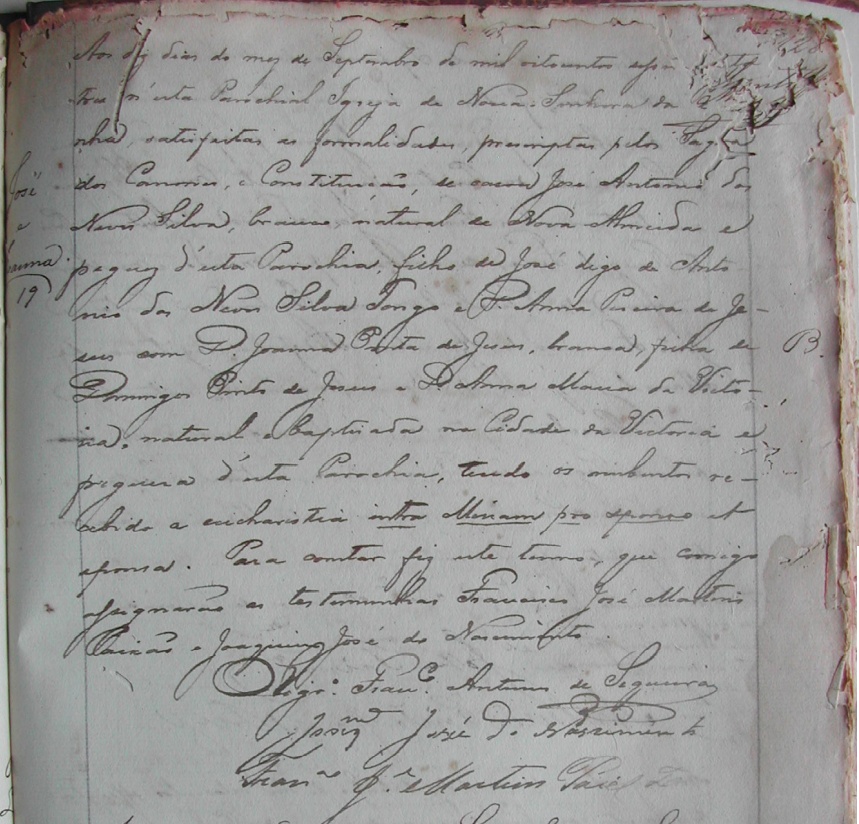 Aos dias do mez de Septembro de mil oitocentos
tres n'esta Parochial Igreja de Nossa Senhora da Pe
nha, satisfeitas as formalidades, prescriptas pelos Sagra
dos Canones, e Constituição, se casou José Antonio das
Neves Silva, branco, natural de Nova Almeida e
freguez d'esta Parochia, filho de José digo de Anto
nio das Neves Silva e D. Anna Pereira de Je-
sus com D. Joanna Pinta de Jesus, branca, filha de
Domingos Pinto de Jesus e D. Anna Maria da Victo-
ria, natural e baptisada na Cidade da Victoria e
fregueza d'esta Parochia, tendo os nubentes re-
cebido a eucharistia intra Missam pro sponso et
sponsa. Para constar fiz este termo, que comigo
assignarão as testemunhas Francisco José Martins
Paixão e Joaquim José do Nascimento.
José
e
Joanna
19
B.
Vigr.º Fran.co Antunes de Sequeira
Joaqm José do Nascimento
Fran.co J.e Martins